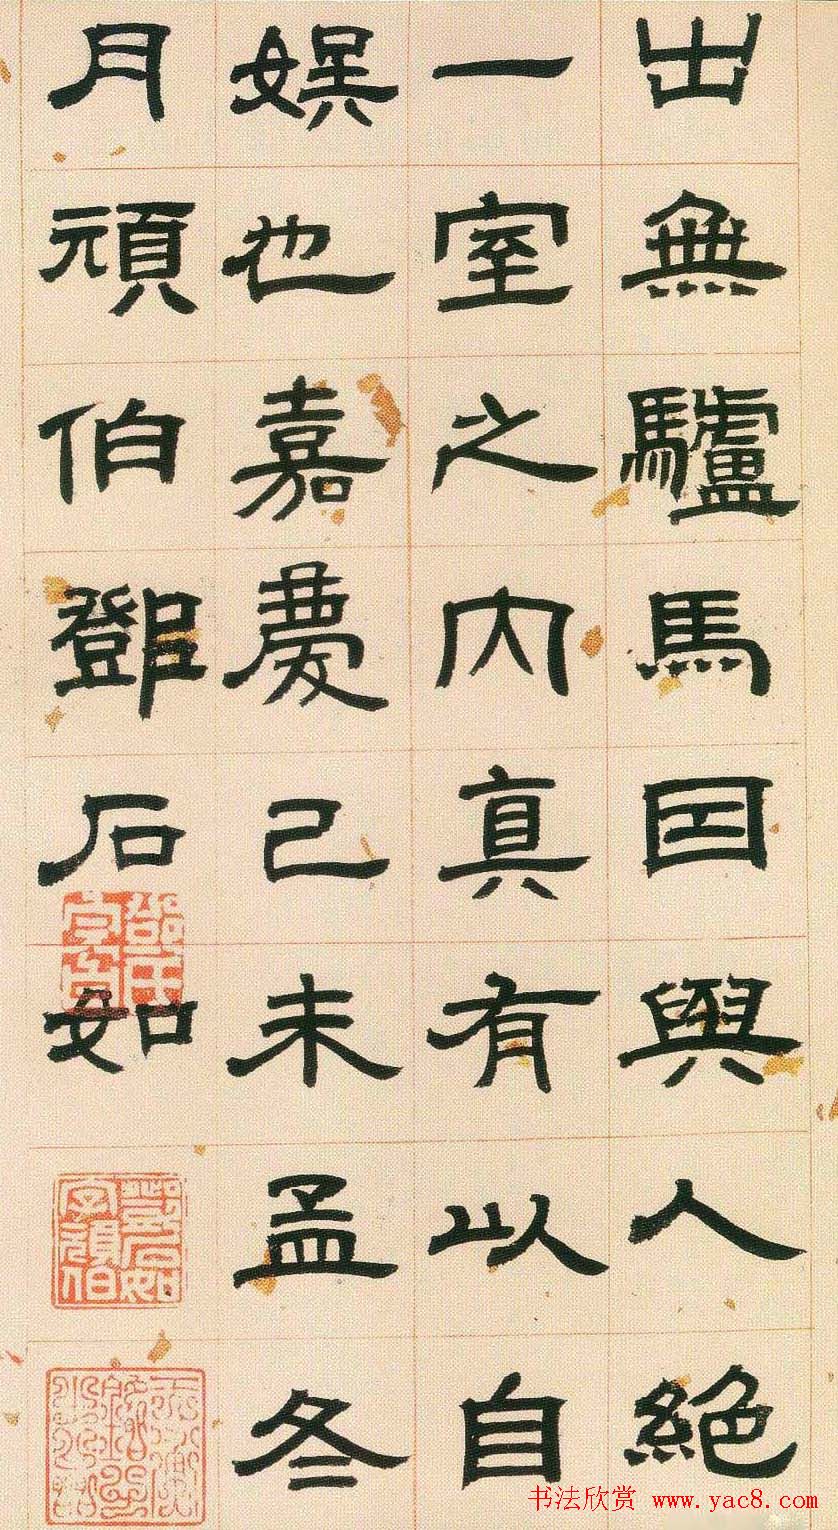 出無驢馬因與人絕
一室之內真有以自
娛也嘉慶己未孟冬
月頑伯鄧石如
鄧石如
字頑伯
书法欣赏 www.yac8.com